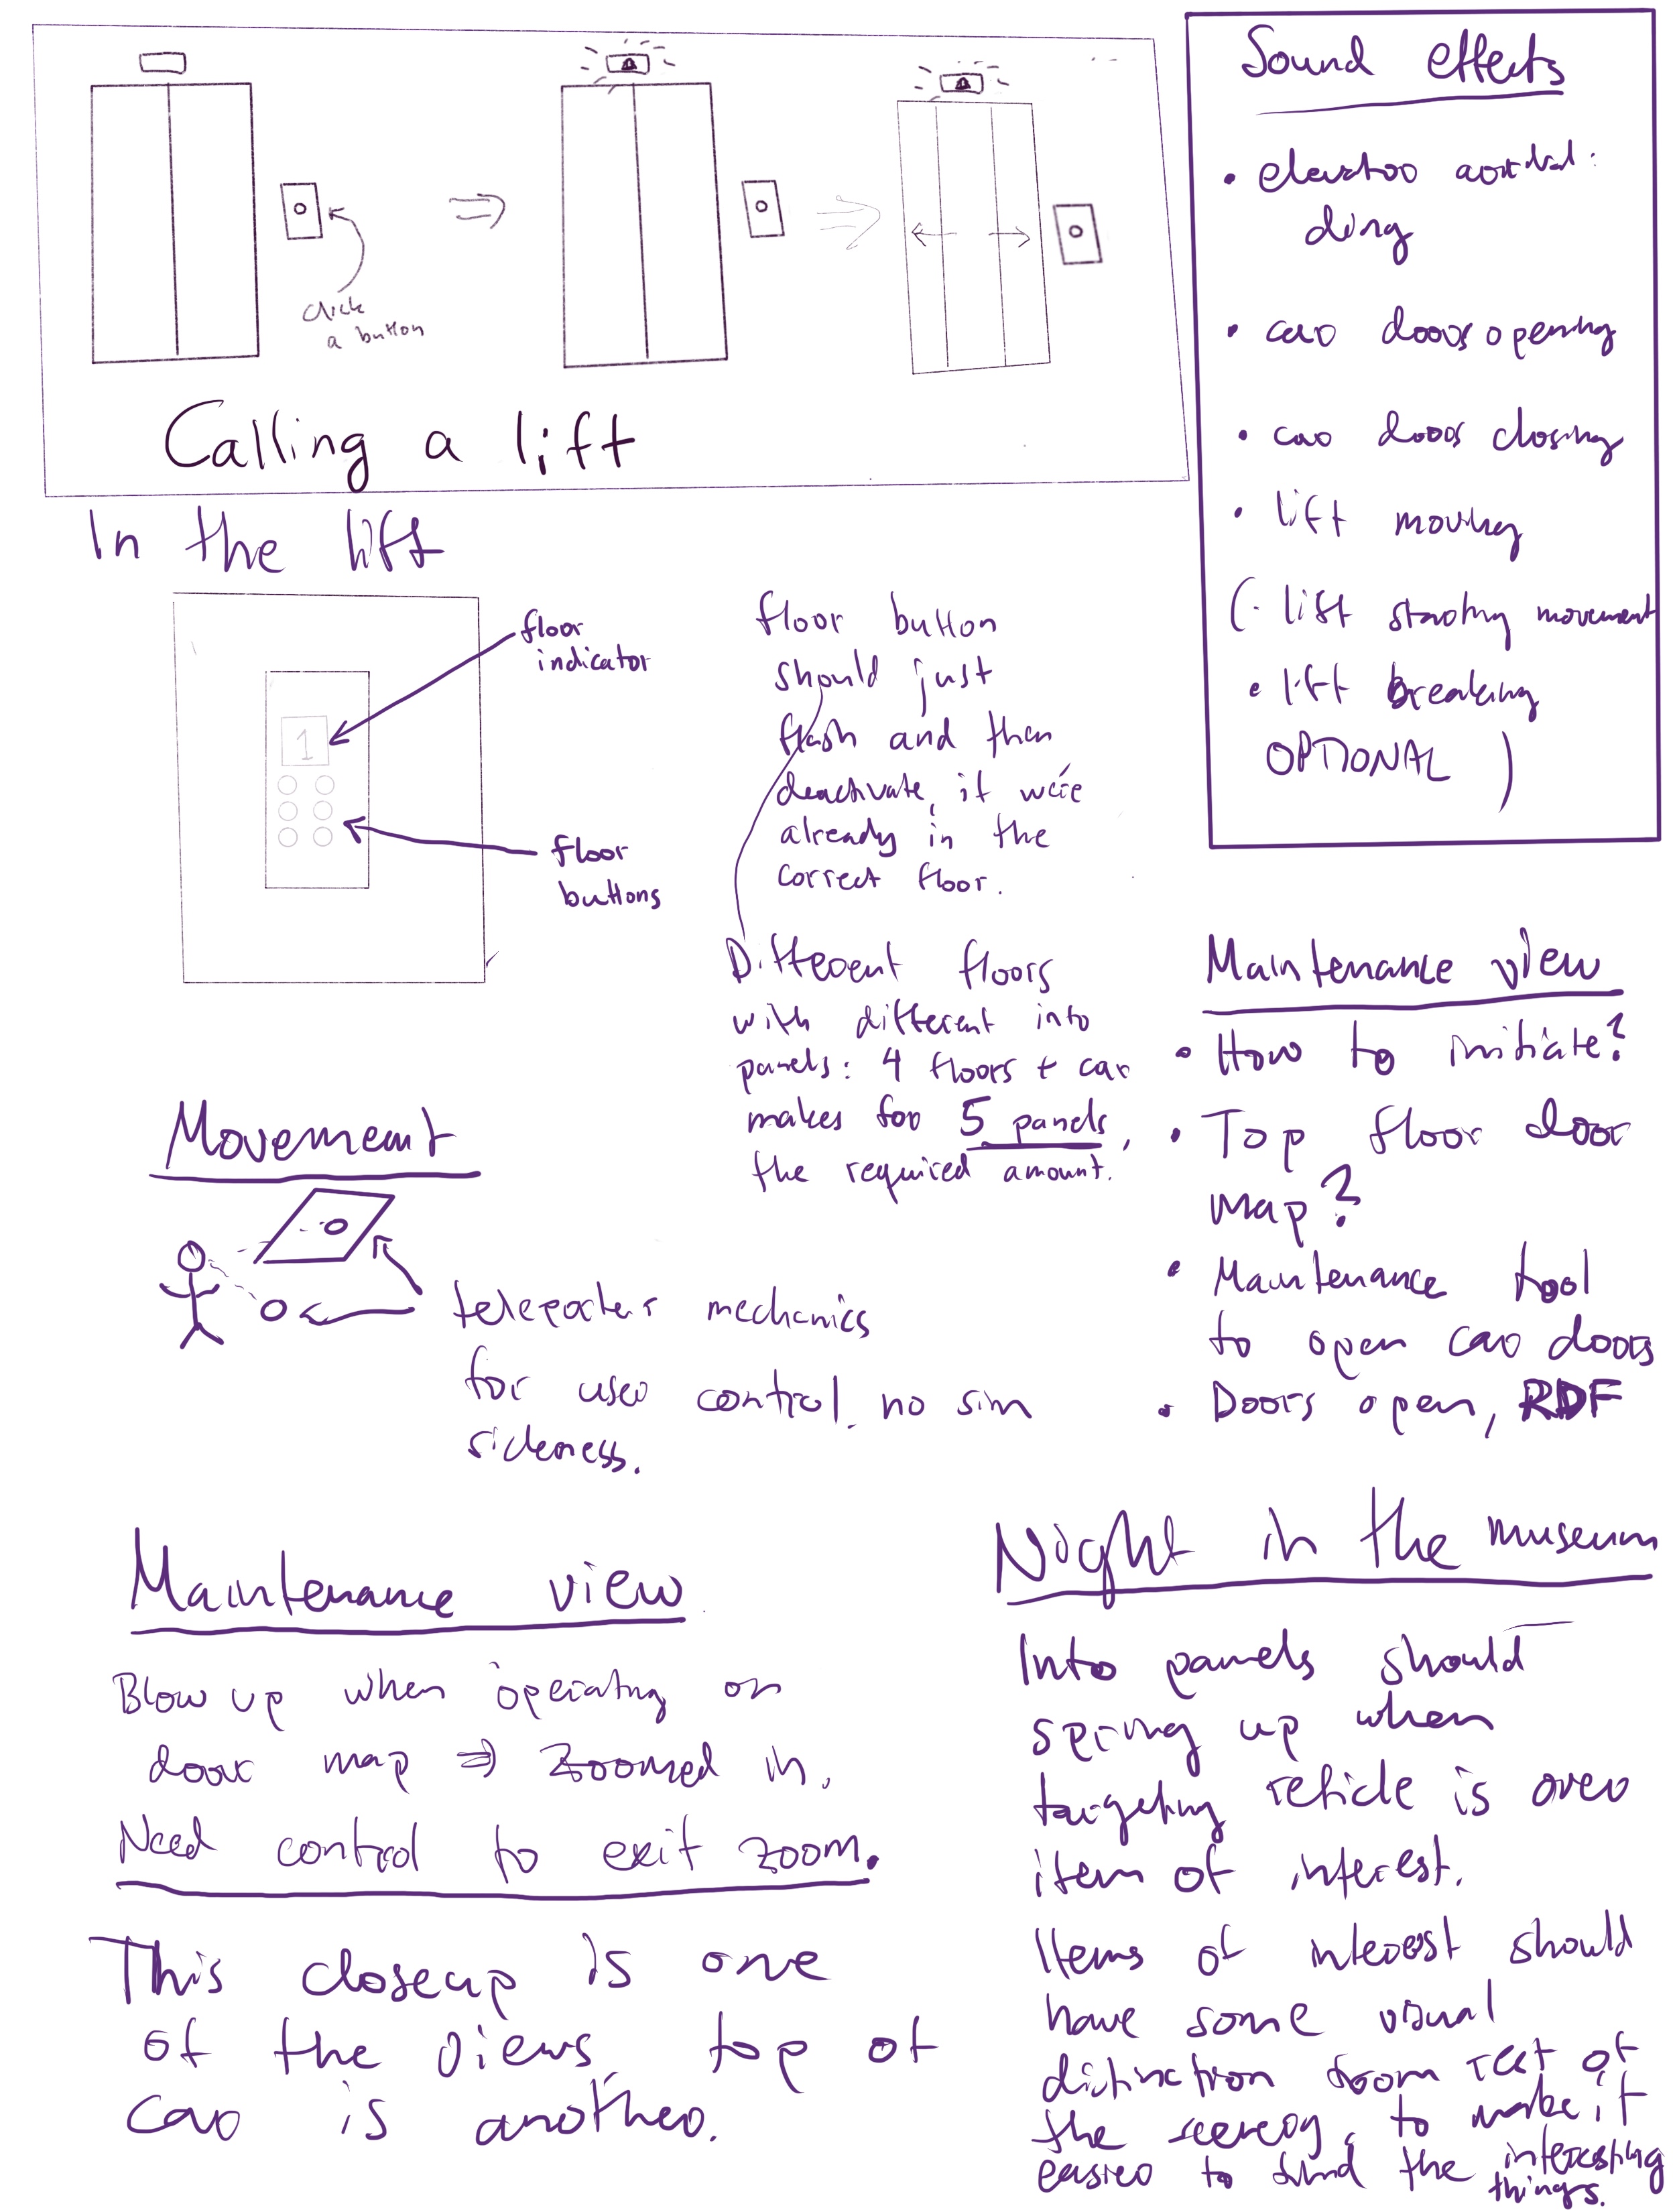 click
a button
Calling a lift
Sound effects
• elevator arrival:
ding
• car doors opening
• car doors closing
• lift moving
(• lift starting movement
• lift breaking
OPTIONAL )
In the lift
floor
indicator
1
floor
buttons
floor button
should just
flash and then
deactivate, if we're
already in the
correct floor.
Different floors
with different info
panels: 4 floors + car
makes for 5 panels,
the required amount.
Maintenance view
• How to initiate?
• Top floor door
map?
• Maintenance tool
to open car doors
• Doors open, RDF
Movement
teleporter mechanics
for user control. no sim
sickness.
Maintenance view
Blow up when operating on
door map ⇒ zoomed in.
Need control to exit zoom.
This closeup is one
of the views, top of
car is another.
Night in the museum
Info panels should
spring up when
targeting reticle is over
item of interest.
Items of interest should
have some visual
distinction from rest of
the scenery, to make it
easier to find the interesting
things.